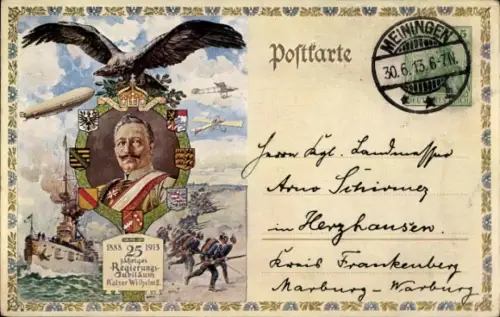 Postkarte
MEININGEN
30.6.13.6-7N.
5
Herrn Kgl. Landmesser
Arno Schirmer
in Herzhausen.
Kreis Frankenberg
Marburg-Warburg
1888 25 1913
jähriges
Regierungs-
Jubiläum
Kaiser Wilhelm II.